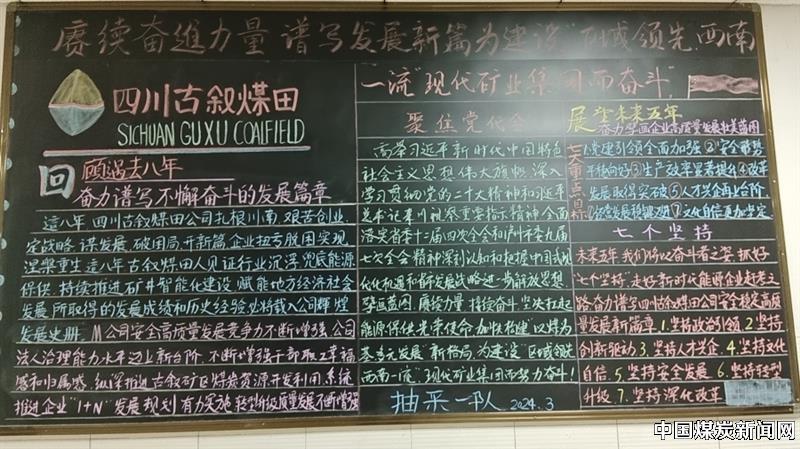 赓续奋进力量 谱写发展新篇 为建设“区域领先 西南
一流”现代矿业集团而奋斗”
四川古叙煤田
SICHUAN GUXU COALFIELD
回顾过去八年
奋力谱写不懈奋斗的发展篇章
这八年 四川古叙煤田公司扎根川南 艰苦创业
定战略 谋发展 破困局 开新篇 企业扭亏脱困实现
涅槃重生 这八年 古叙煤田人见证行业沉浮 兜底能源
保供 持续推进矿井智能化建设 赋能地方经济社会
发展 所取得的发展成绩和历史经验必将载入公司辉煌
发展史册. 公司安全高质量发展竞争力不断增强 公司
法人治理能力水平迈上新台阶 不断增强干部职工幸福
感和归属感 纵深推进古叙矿区煤炭资源开发利用 系统
推进企业“1+N”发展规划 有力实施 转型升级质量发展不断增强
聚焦党代会
高举习近平新时代中国特色
社会主义思想伟大旗帜 深入
学习贯彻党的二十大精神和习近平
总书记来川视察重要指示精神 全面
落实省委十二届四次全会和泸州市委九届
七次全会精神 深刻认识和把握中国式现
代化机遇和新发展战略 进一步解放思想
擘画蓝图 赓续力量 接续奋斗 坚决扛起
能源保供光荣使命 加快构建“以煤为
基 多元发展”新格局 为建设“区域领先
西南一流”现代矿业集团而努力奋斗!
抽采一队 2024.3
展望未来五年
奋力擘画企业高质量发展壮美蓝图
七大重点目标
①党建引领全面加强 ②安全态势
平稳向好 ③生产效率显著提升 ④改革
发展取得突破 ⑤人才兴企再上台阶
⑥经营发展稳健双进 ⑦文化自信更加坚定
七个坚持
未来五年 我们将以奋斗者之姿 抓好
“七个坚持” 走好新时代能源企业赶考之
路 奋力谱写四川古叙煤田公司安全稳定高质
量发展新篇章 1.坚持政治引领 2.坚持
创新驱动 3.坚持人才兴企 4.坚持文化
自信 5.坚持安全发展 6.坚持转型
升级 7.坚持深化改革
中国煤炭新闻网